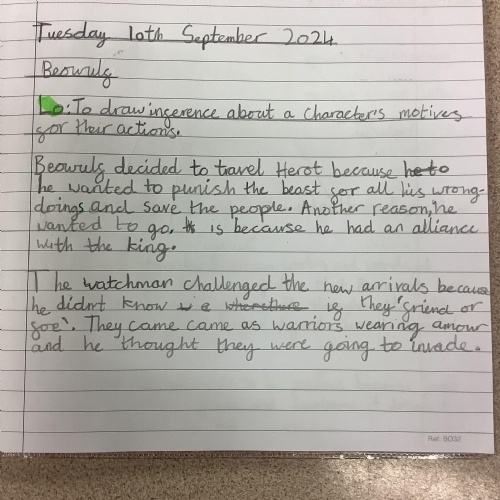 Tuesday 10th September 2024
Beowulf
Lo: To draw inference about a character's motives
for their actions.
Beowulf decided to travel Herot because he to
he wanted to punish the beast for all his wrong-
doings and save the people. Another reason, he
wanted to go, is because he had an alliance
with the king.
The watchman challenged the new arrivals because
he didnt know if they 'friend or
foe'. They came came as warriors wearing amour
and he thought they were going to invade.
Ref: BO32